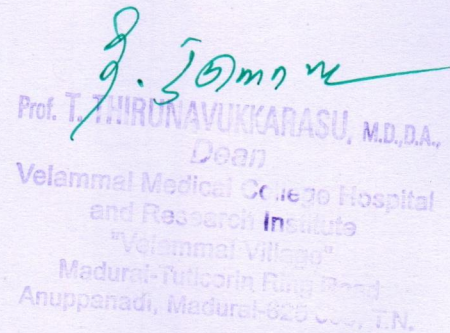 Prof. T. THIRUNAVUKKARASU, M.D.,D.A.,
Dean
Velammal Medical College Hospital
and Research Institute
"Velammal Village"
Madurai-Tuticorin Ring Road
Anuppanadi, Madurai-625 T.N.